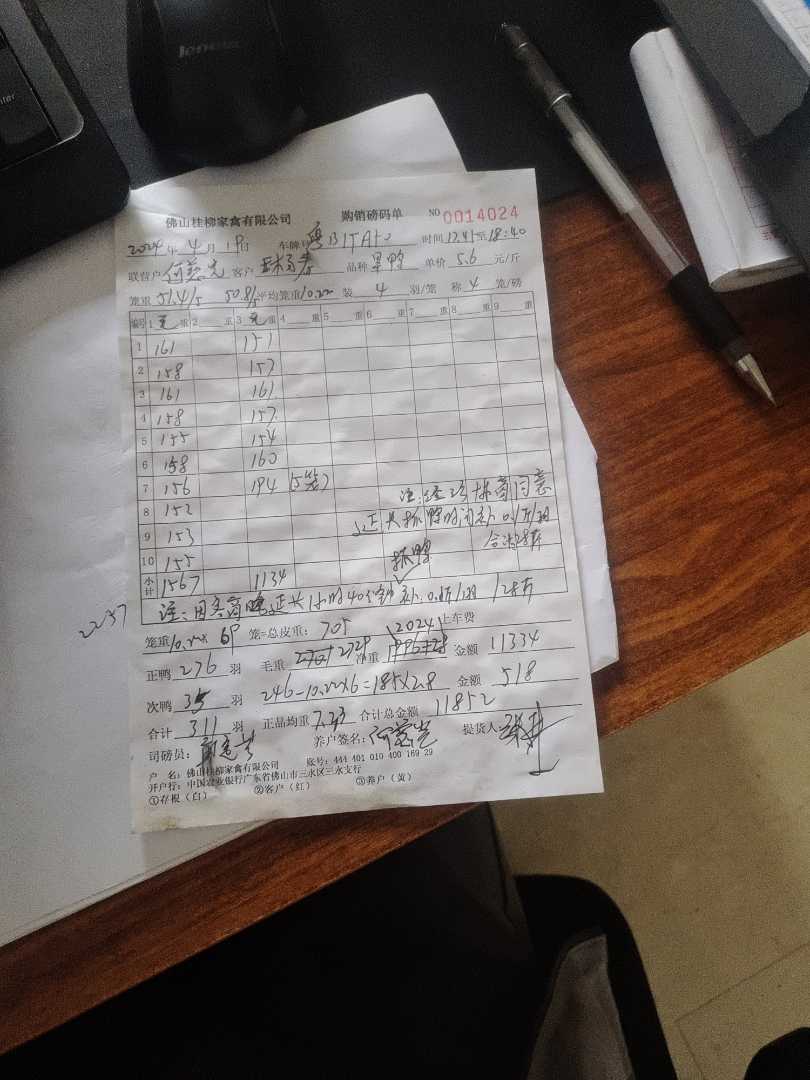 lenovo
佛山桂柳家禽有限公司 购销磅码单 NO 0014024
2024年4月19日 车牌号 粤 时间 17.41至18:40
联营户 客户 杨 品种 单价 5.6 元/斤
笼重 51.4/5 50.8/5 平均笼重 10.22 装 4 羽/笼 称 4 笼/磅
编号 1 重 2 重 3 重 4 重 5 重 6 重 7 重 8 重 9 重
1 161 151
2 158 157
3 161 161
4 158 157
5 155 154
6 158 160
7 156 194 (5笼)
8 152
9 153
10 155
小计 1567 1134
注:经 同意
延长抓鸭时间补0.1斤/羽
合计28斤
抓鸭
注: 延长1小时40分钟补0.1斤/羽 /28斤
2257
笼重 10.22× 69 笼=总皮重: 705 2024 上车费
正鸭 276 羽 毛重 2701 2729 净重 1996+28 金额 11334
次鸭 35 羽 246-10.22×6=185×2.8 金额 518
合计 311 羽 正品均重 7.23 合计总金额 11852
司磅员: 养户签名: 提货人
户 名: 佛山桂柳家禽有限公司 账号: 444 401 010 400 169 29
开户行: 中国农业银行广东省佛山市三水区三水支行
①存根(白) ②客户(红) ③养户(黄)